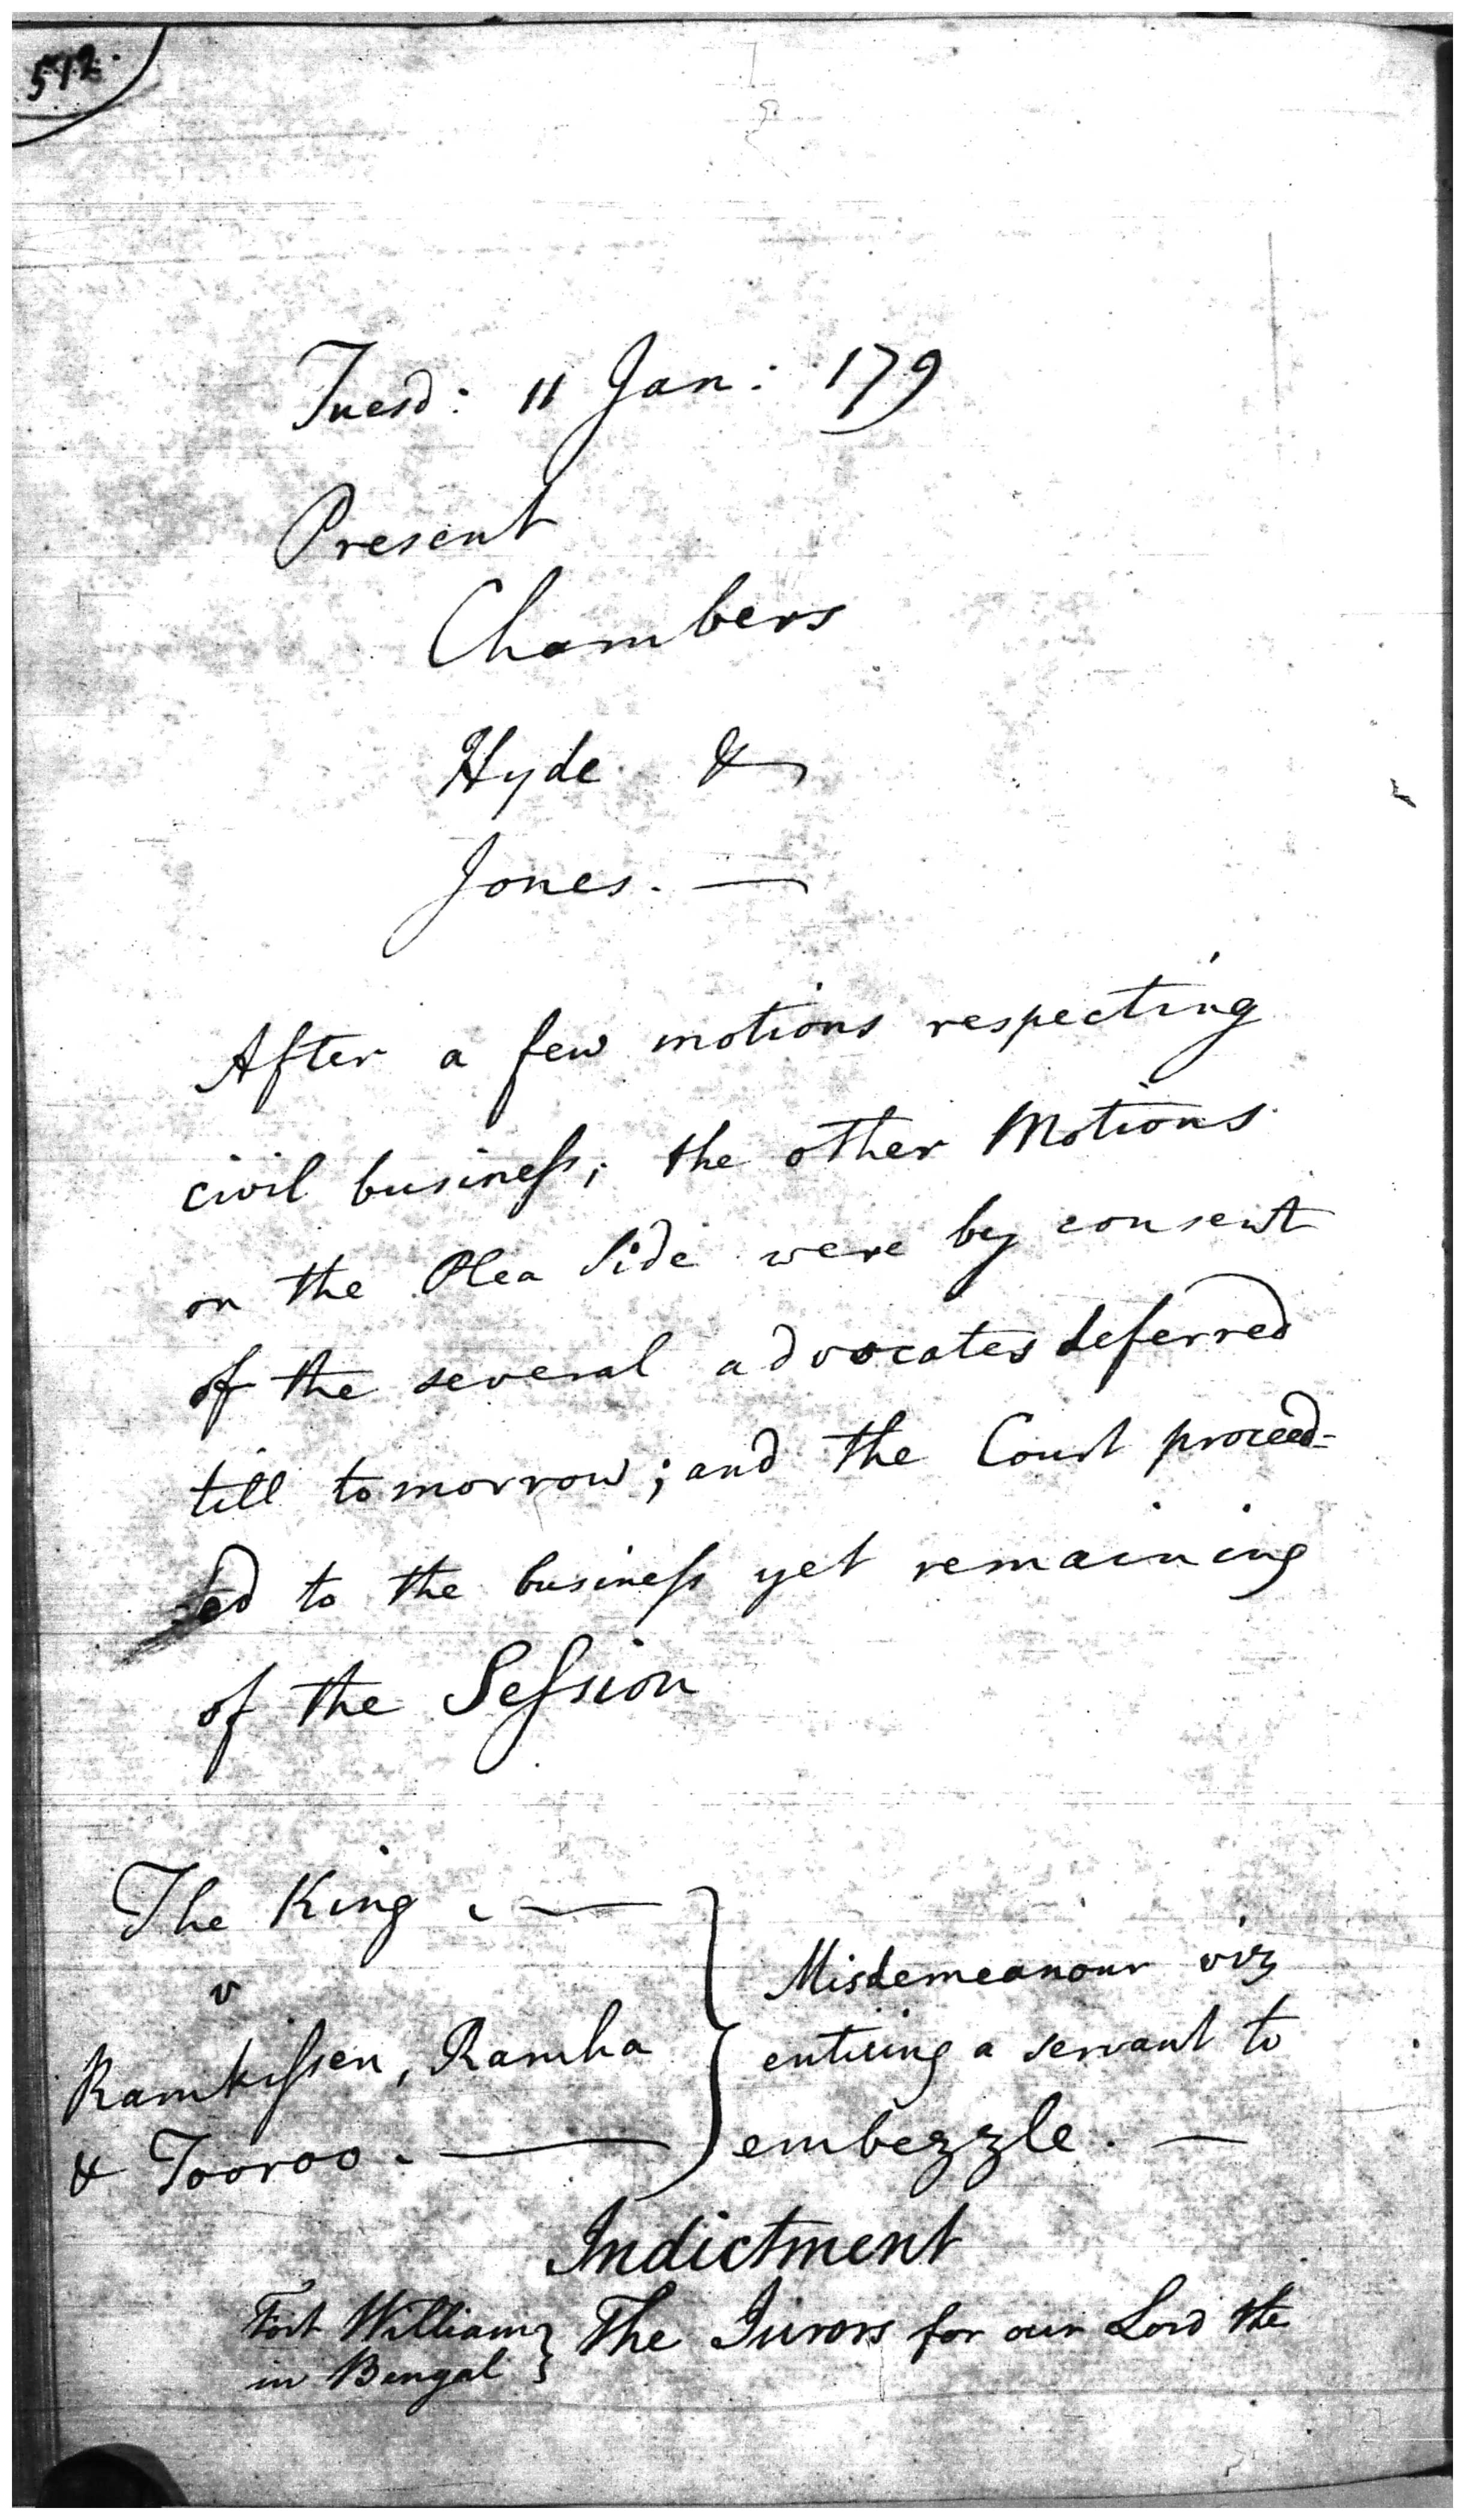 512.
Tuesd: 11 Jan: 179
Present
Chambers
Hyde &
Jones. —
After a few motions respecting
civil busineſs; the other Motions
on the Plea Side were by consent
of the several advocates deferred
till tomorrow; and the Court proceed-
ed to the busineſs yet remaining
of the Seſsion
The King. —
v
Ramkiſsen, Ramha
& Tooroo. —
Misdemeanour viz
enticing a servant to
embezzle. —
Indictment
Fort William
in Bengal } The Jurors for our Lord the